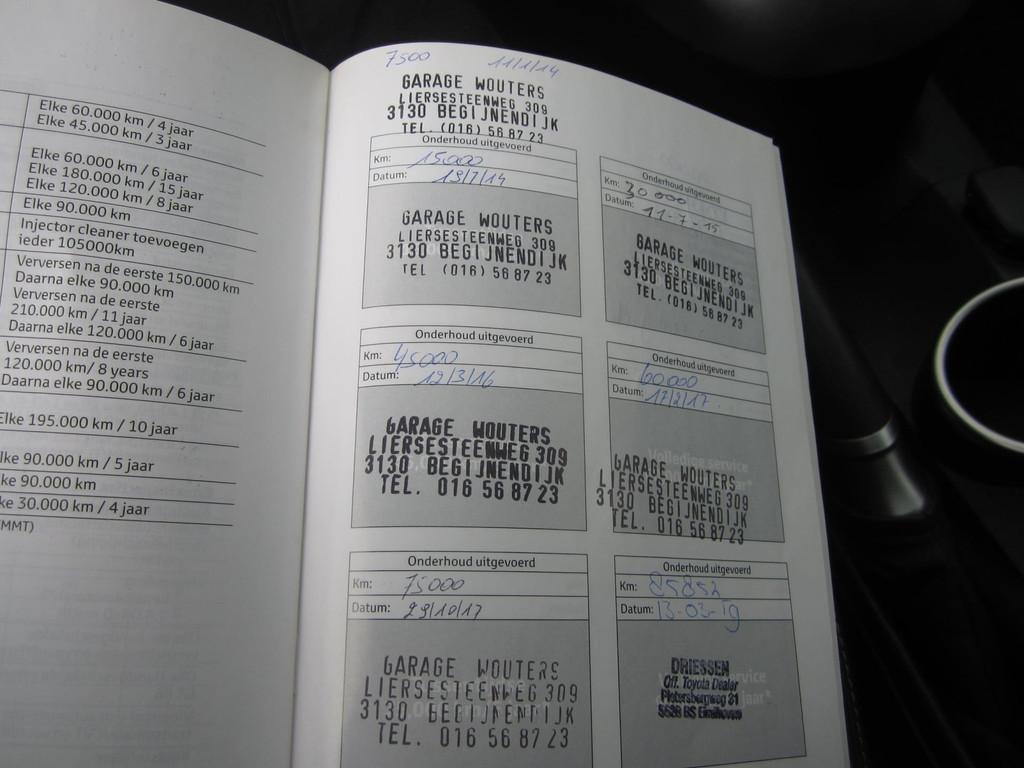 Elke 60.000 km / 4 jaar
Elke 45.000 km / 3 jaar
Elke 60.000 km / 6 jaar
Elke 180.000 km / 15 jaar
Elke 120.000 km / 8 jaar
Elke 90.000 km
Injector cleaner toevoegen
ieder 105000km
Verversen na de eerste 150.000 km
Daarna elke 90.000 km
Verversen na de eerste
210.000 km / 11 jaar
Daarna elke 120.000 km / 6 jaar
Verversen na de eerste
120.000 km/ 8 years
Daarna elke 90.000 km / 6 jaar
Elke 195.000 km / 10 jaar
ke 90.000 km / 5 jaar
ke 90.000 km
ke 30.000 km / 4 jaar
MMT)
7500 11/1/14
GARAGE WOUTERS
LIERSESTEENWEG 309
3130 BEGIJNENDIJK
TEL. (016) 56 87 23
Onderhoud uitgevoerd
Km: 15000
Datum: 19/7/14
GARAGE WOUTERS
LIERSESTEENWEG 309
3130 BEGIJNENDIJK
TEL (016) 56 87 23
Onderhoud uitgevoerd
Km: 30 000
Datum: 11-7-15
GARAGE WOUTERS
LIERSESTEENWEG 309
3130 BEGIJNENDIJK
TEL. (016) 56 87 23
Onderhoud uitgevoerd
Km: 45000
Datum: 12/3/16
GARAGE WOUTERS
LIERSESTEENWEG 309
3130 BEGIJNENDIJK
TEL. 016 56 87 23
Onderhoud uitgevoerd
Km: 60000
Datum: 17/2/17
Volledige service
GARAGE WOUTERS
LIERSESTEENWEG 309
3130 BEGIJNENDIJK
TEL. 016 56 87 23
Onderhoud uitgevoerd
Km: 75000
Datum: 29/10/17
GARAGE WOUTERS
LIERSESTEENWEG 309
3130 BEGIJNENDIJK
TEL. 016 56 87 23
Onderhoud uitgevoerd
Km: 85852
Datum: 13-03-19
DRIESSEN
Off. Toyota Dealer
Pietersbergweg 31
5628 BS Eindhoven